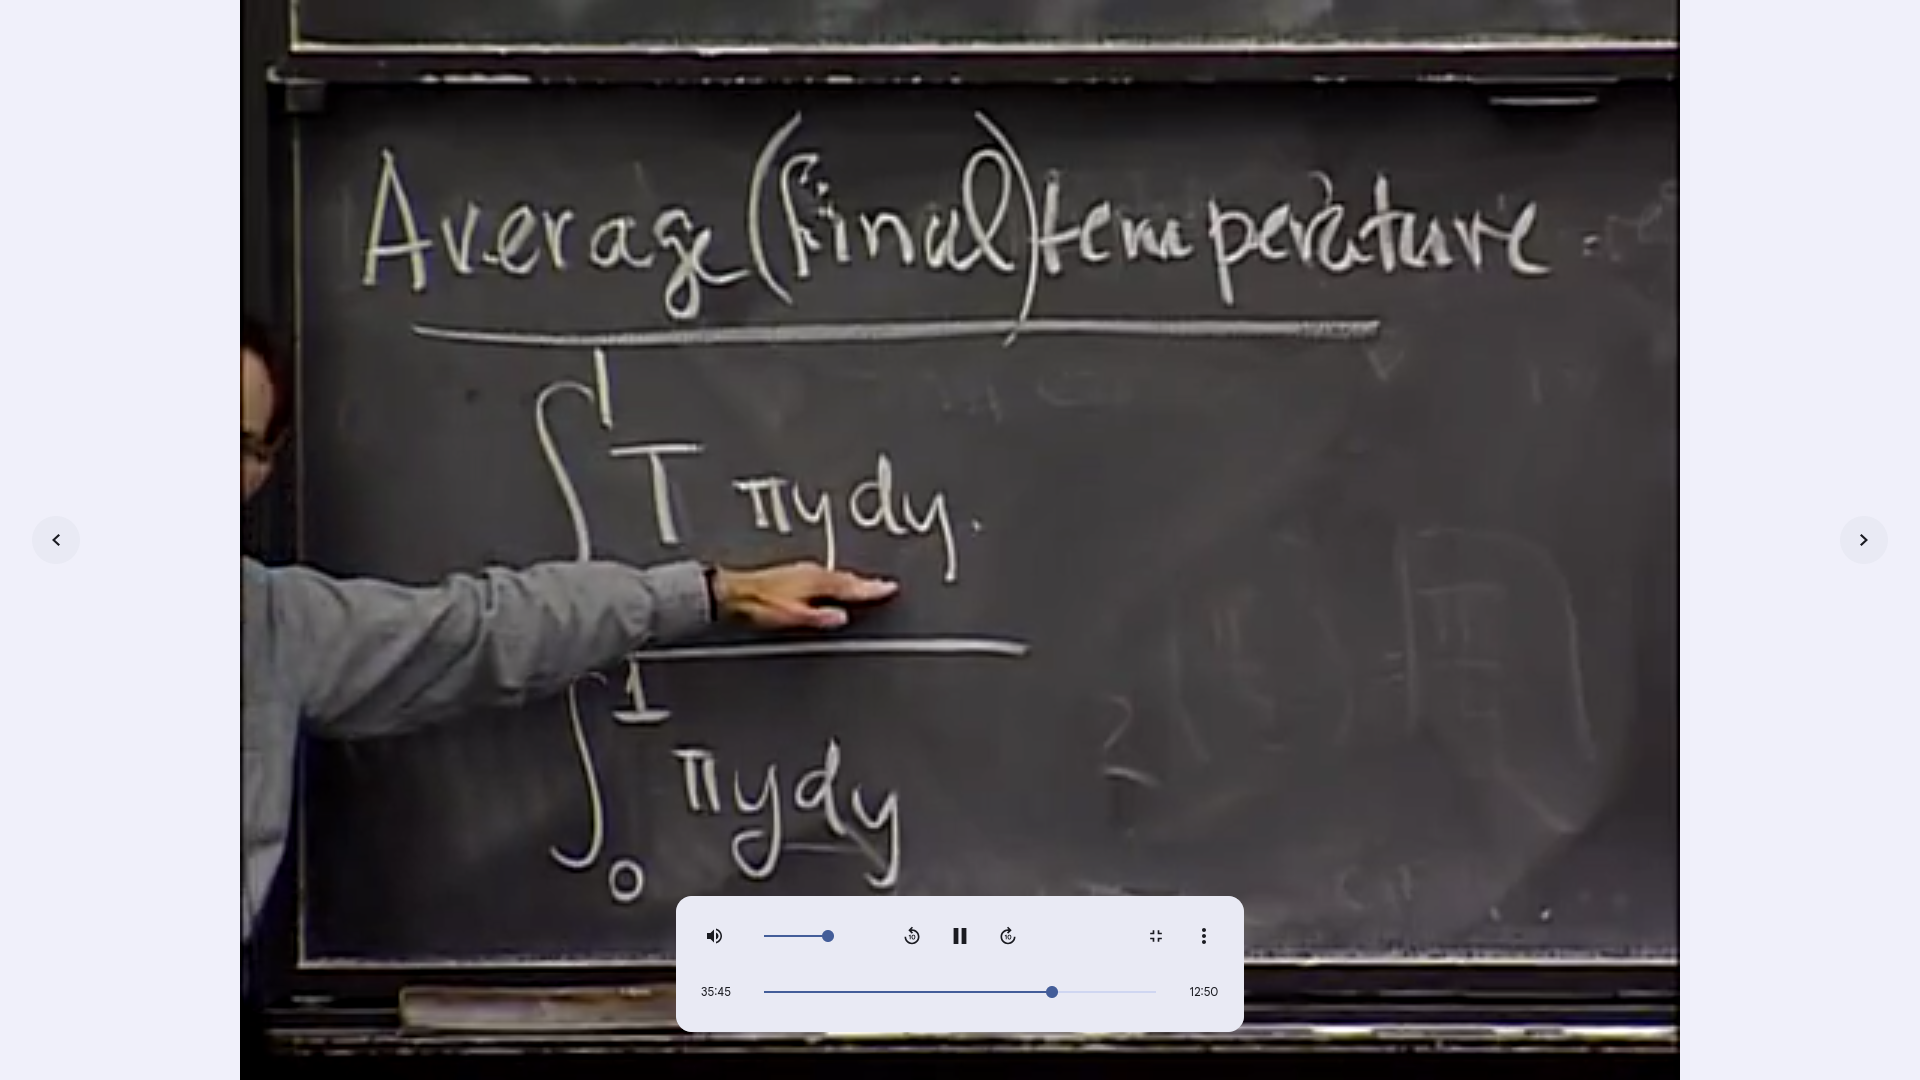 Average (final) temperature =
∫ 1
T πy dy.
∫ 1 0 πy dy
10 10
35:45 12:50